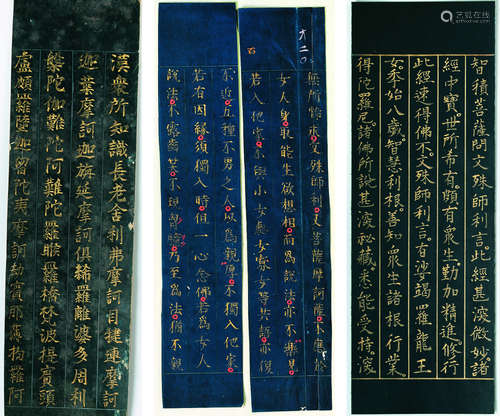 漢衆所知識長老舍利弗摩訶目揵連摩訶
迦葉摩訶迦旃延摩訶俱絺羅離婆多周利
槃陀伽難陀阿難陀羅睺羅憍梵波提賓頭
盧頗羅墮迦留陀夷摩訶劫賓那薄拘羅阿
大二〇
無所悕求又文殊師利菩薩摩訶薩不應於
女人身取能生欲想相而為說法亦不樂見
若入他家不與小女處女寡女等共語亦復
不近五種不男之人以為親厚不獨入他家
若有因緣須獨入時但一心念佛若為女人
說法不露齒笑不現胸臆乃至為法猶不親
艺狐在线
智積菩薩問文殊師利言此經甚深微妙諸
經中寶世所希有頗有衆生勤加精進修行
此經速得佛不文殊師利言有娑竭羅龍王
女年始八歲智慧利根善知衆生諸根行業
得陀羅尼諸佛所說甚深祕藏悉能受持深